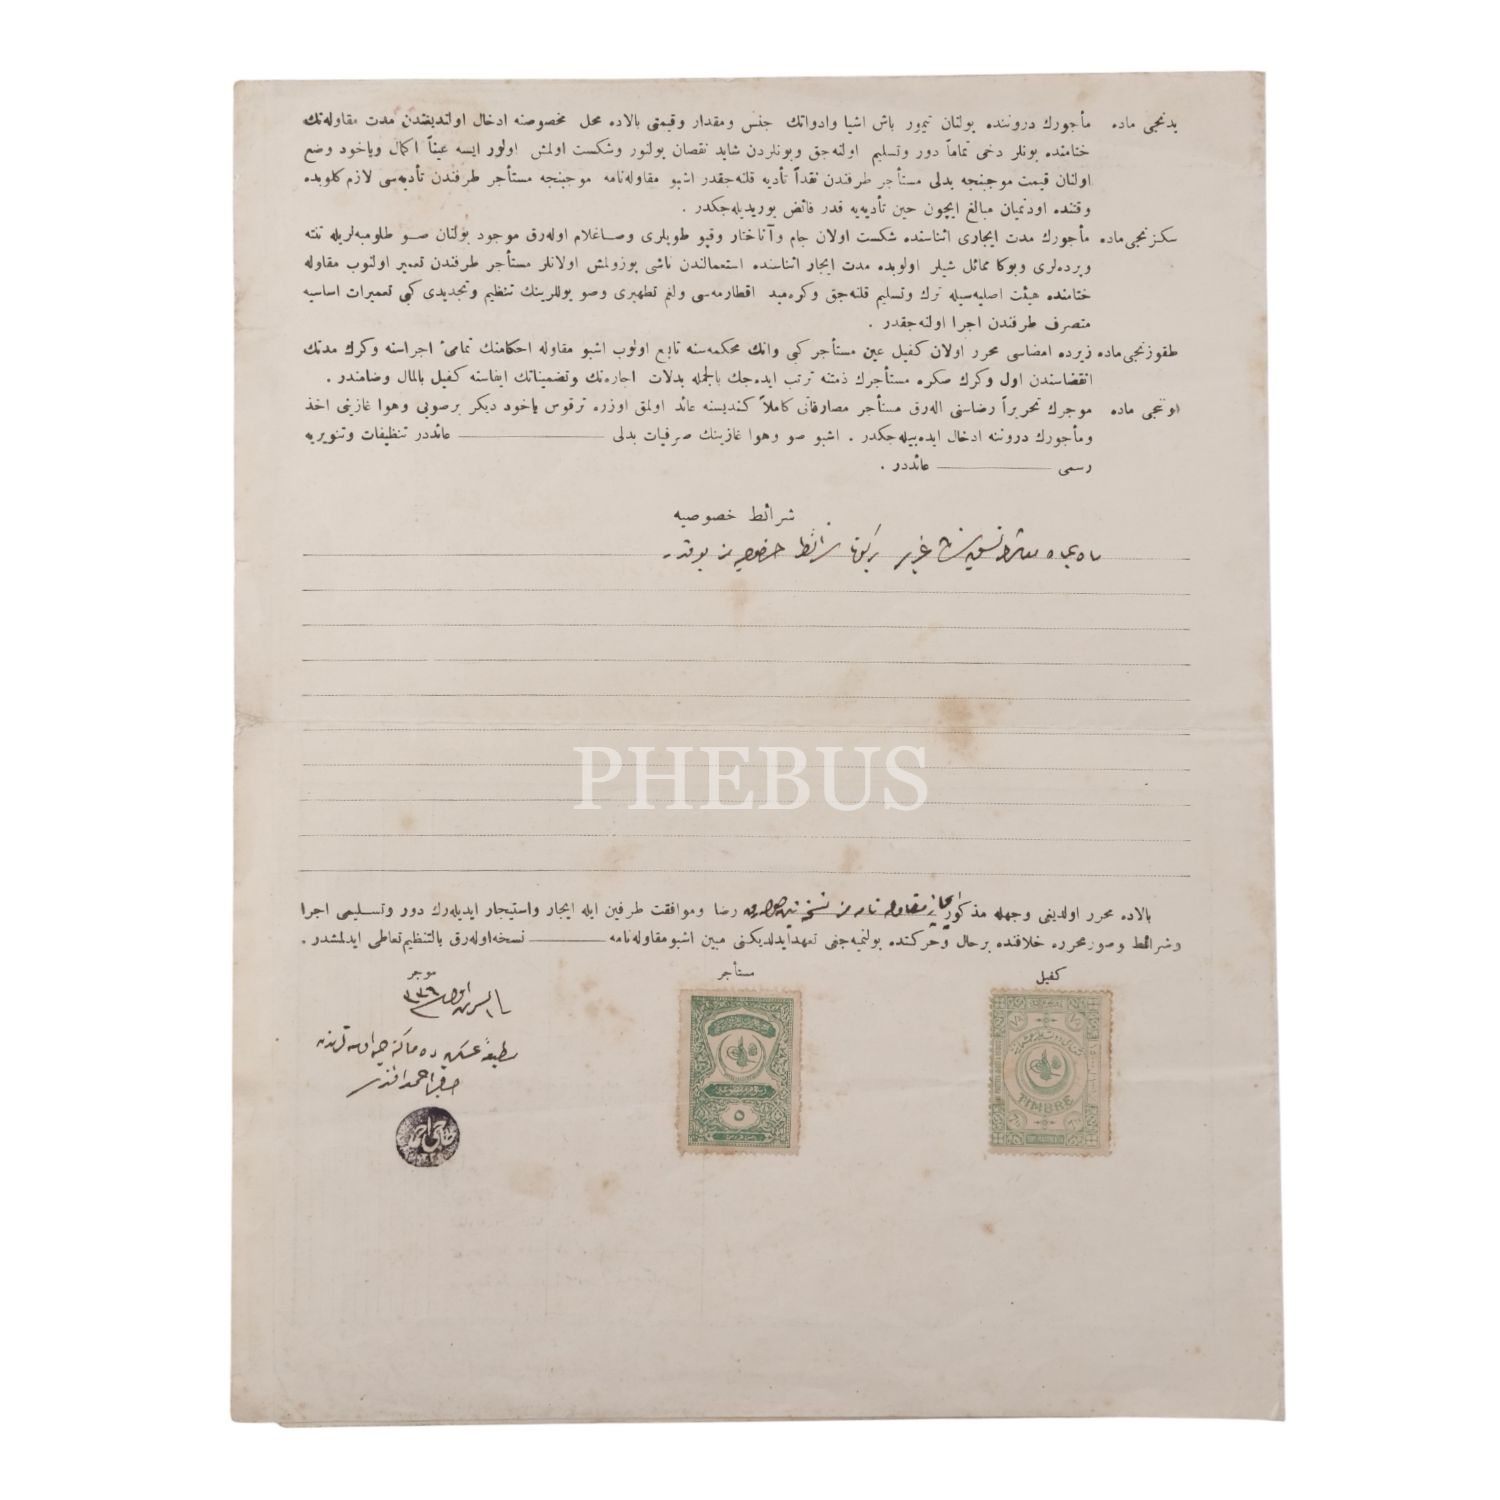 يدنجی ماده مأجورك دروننده بولنان تيمور باش اشيا وادواتك جنس ومقدار وقيمتی بالاده محل مخصوصنه ادخال اولنديغندن مدت مقاوله‌نك
ختامنده بونلر دخی تماماً دور وتسليم اولنه‌جق وبونلردن شايد نقصان بولنور وشكست اولمش اولور ايسه عيناً اكمال وياخود وضع
اولنان قيمت موجبنجه بدلی مستأجر طرفندن نقداً تأديه قلنه‌جقدر اشبو مقاوله‌نامه موجبنجه مستأجر طرفندن تأديه‌سی لازم كلوبده
وقتنده اودنميان مبالغ ايچون حين تأديه‌يه قدر فائض يوريديله‌جكدر .
سكزنجی ماده مأجورك مدت ايجاری اثناسنده شكست اولان جام وآناختار وقپو طوپلری وصاغلام اوله‌رق موجود بولنان صو طلومبه‌لريله تنته
وپرده‌لری وبوكا مماثل شيلر اولوبده مدت ايجار اثناسنده استعمالندن ناشی بوزولمش اولانلر مستأجر طرفندن تعمير اولنوب مقاوله
ختامنده هيئت اصليه‌سيله ترك وتسليم قلنه‌جق وكره‌ميد اقطارمه‌سی ولغم تطهيری وصو يوللرينك تنظيم وتجديدی كبی تعميرات اساسيه
متصرف طرفندن اجرا اولنه‌جقدر .
طقوزنجی ماده زيرده امضاسی محرر اولان كفيل عين مستأجر كبی وانك محكمه‌سنه تابع اولوب اشبو مقاوله احكامنك تمامیٔ اجراسنه وكرك مدتك
انقضاسندن اول وكرك صكره مستأجرك ذمتنه ترتب ايده‌جك بالجمله بدلات اجاره‌نك وتضميناتك ايفاسنه كفيل بالمال وضامندر .
اوننجی ماده موجرك تحريراً رضاسنی اله‌رق مستأجر مصارفاتی كاملاً كنديسنه عائد اولمق اوزره ترقوس ياخود ديكر برصويی وهوا غازينی اخذ
ومأجورك دروننه ادخال ايده‌بيله‌جكدر . اشبو صو وهوا غازينك صرفيات بدلی عائددر تنظيفات وتنويريه
رسمی عائددر .
شرائط خصوصيه
شرائط خصوصيه‌مز يوقدر
PHEBUS
بالاده محرر اولديغی وجهله مذكور ايجار مقاوله نامه‌مز رضا وموافقت طرفين ايله ايجار واستيجار ايديله‌رك دور وتسليمی اجرا
وشرائط وصورمحرره خلافنده برحال وحركتده بولنميه‌جغی تعهدايدلديكنی مبين اشبومقاوله‌نامه نسخه‌اوله‌رق بالتنظيم‌تعاطی ايدلمشدر .
كفيل مستأجر موجر
٣٣٦
احمد افندی
TIMBRE
٥